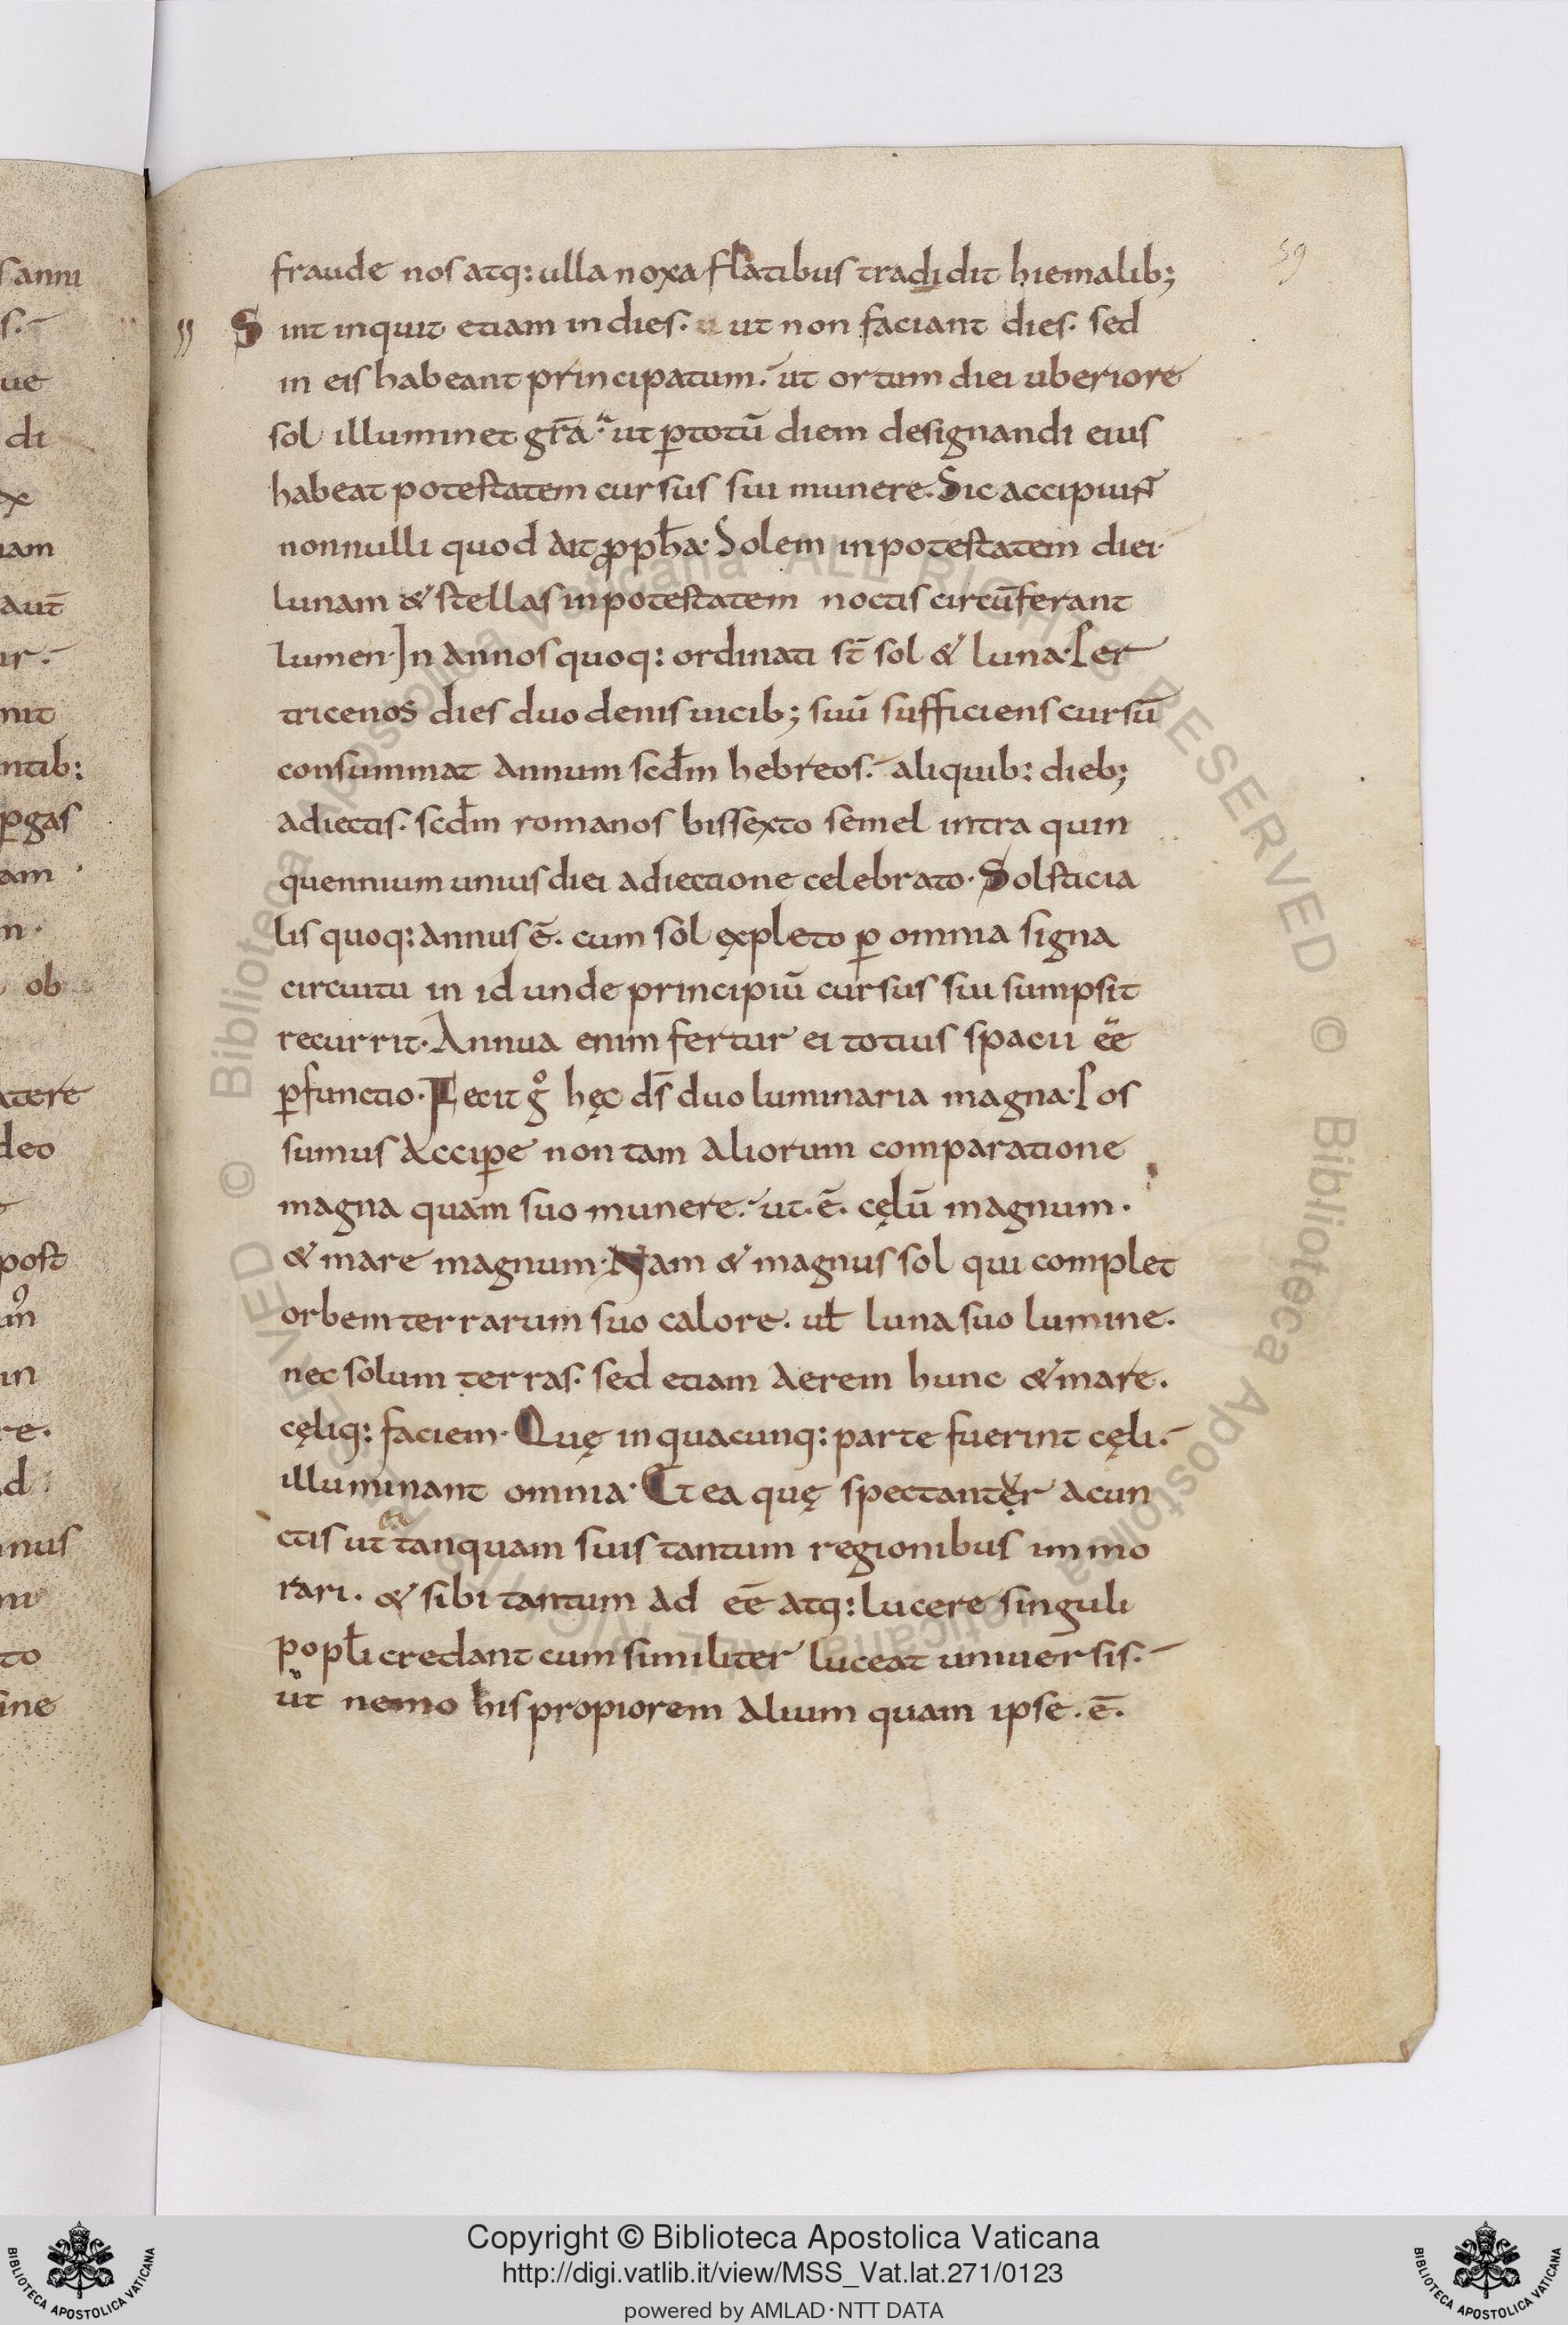 59
fraude nos atq: ulla noxa flatibus tradidit hiemalib;
Sint inquit etiam in dies. ut non faciant dies. sed
in eis habeant principatum. ut ortum diei uberiore
sol illuminet gr̄a. ut ꝑtotū diem designandi eius
habeat potestatem cursus sui munere. Sic accipiuɴᴛ
nonnulli quod ait ꝓpħa. Solem in potestatem diei.
lunam & stellas in potestatem noctis circūferant
lumen. In annos quoq: ordinati st̄ sol & luna. Per
tricenos dies duodenis uicib; suū sufficiens cursū
consummat annum scdm̄ hebreos. aliquib: dieb;
adiectis. scdm̄ romanos bissexto semel intra quin
quennium unius diei adiectione celebrato. Solsticia
lis quoq: annus ē. cum sol expleto ꝑ omnia signa
circuitu in id unde principiū cursus sui sumpsit
recurrit. Annua enim fertur ei totius spacii ēe
ꝑfunctio. Fecit gͦ hęc ds̄ duo luminaria magna. Pos
sumus acciꝑe non tam aliorum comparatione
magna quam suo munere. ut. ē. cęlū magnum.
& mare magnum. Nam & magnus sol qui complet
orbem terrarum suo calore. uƚ luna suo lumine.
nec solum terras. sed etiam aerem hunc & mare.
cęliq: faciem. Quę in quacunq: parte fuerint cęli.
illuminant omnia. Et ea quę spectanter a cun
ctis ut tanquam suis tantum regionibus immo
rari. & sibi tantum ad ēe atq: lucere singuli
popƚi credant cum similiter luceat uniuersis.
ut nemo his propiorem alium quam ipse. ē.
Copyright © Biblioteca Apostolica Vaticana
http://digi.vatlib.it/view/MSS_Vat.lat.271/0123
powered by AMLAD·NTT DATA